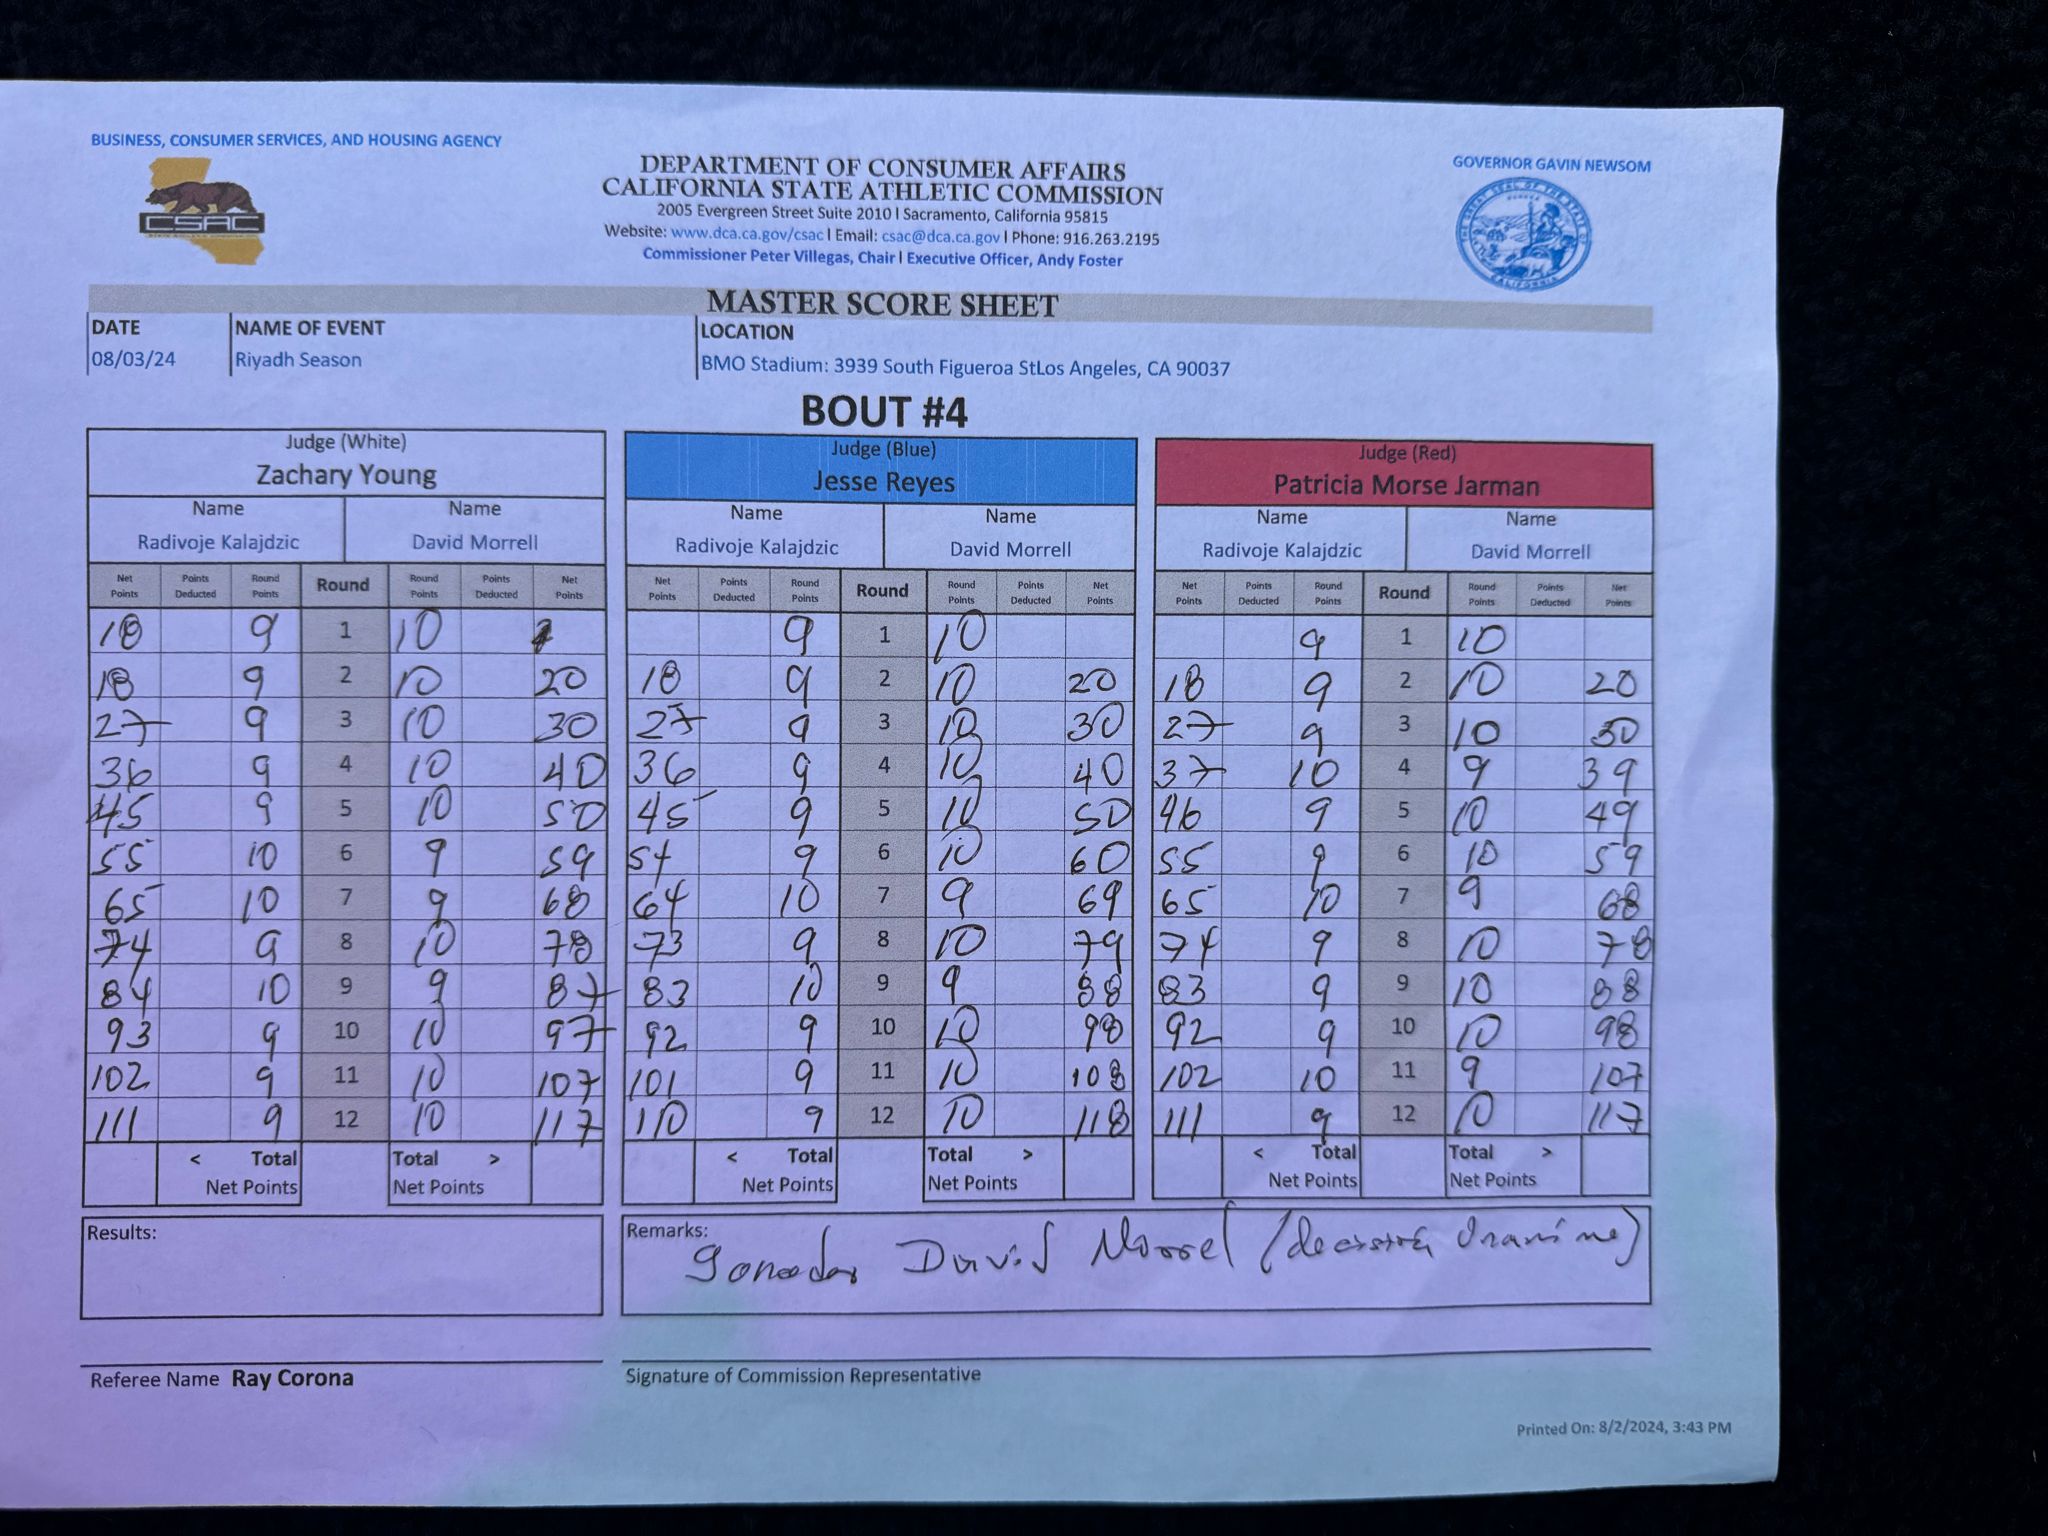 BUSINESS, CONSUMER SERVICES, AND HOUSING AGENCY
CSAC
DEPARTMENT OF CONSUMER AFFAIRS
CALIFORNIA STATE ATHLETIC COMMISSION
2005 Evergreen Street Suite 2010 | Sacramento, California 95815
Website: www.dca.ca.gov/csac | Email: csac@dca.ca.gov | Phone: 916.263.2195
Commissioner Peter Villegas, Chair | Executive Officer, Andy Foster
GOVERNOR GAVIN NEWSOM
MASTER SCORE SHEET
DATE NAME OF EVENT LOCATION
08/03/24 Riyadh Season BMO Stadium: 3939 South Figueroa StLos Angeles, CA 90037
BOUT #4
Judge (White) Judge (Blue) Judge (Red)
Zachary Young Jesse Reyes Patricia Morse Jarman
Name Name Name Name Name Name
Radivoje Kalajdzic David Morrell Radivoje Kalajdzic David Morrell Radivoje Kalajdzic David Morrell
Net Points Points Deducted Round Points Round Round Points Points Deducted Net Points Net Points Points Deducted Round Points Round Round Points Points Deducted Net Points Net Points Points Deducted Round Points Round Round Points Points Deducted Net Points
18 9 1 10 9 1 10 9 1 10
18 9 2 10 20 18 9 2 10 20 18 9 2 10 20
27 9 3 10 30 27 9 3 10 30 27 9 3 10 30
36 9 4 10 40 36 9 4 10 40 37 10 4 9 39
45 9 5 10 50 45 9 5 10 50 46 9 5 10 49
55 10 6 9 59 54 9 6 10 60 55 9 6 10 59
65 10 7 9 68 64 10 7 9 69 65 10 7 9 68
74 9 8 10 78 73 9 8 10 79 74 9 8 10 78
84 10 9 9 87 83 10 9 9 88 83 9 9 10 88
93 9 10 10 97 92 9 10 10 98 92 9 10 10 98
102 9 11 10 107 101 9 11 10 108 102 10 11 9 107
111 9 12 10 117 110 9 12 10 118 111 9 12 10 117
< Total Total > < Total Total > < Total Total >
Net Points Net Points Net Points Net Points Net Points Net Points
Results:
Remarks: Ganador David Morrel (decisión Unanime)
Referee Name Ray Corona
Signature of Commission Representative
Printed On: 8/2/2024, 3:43 PM